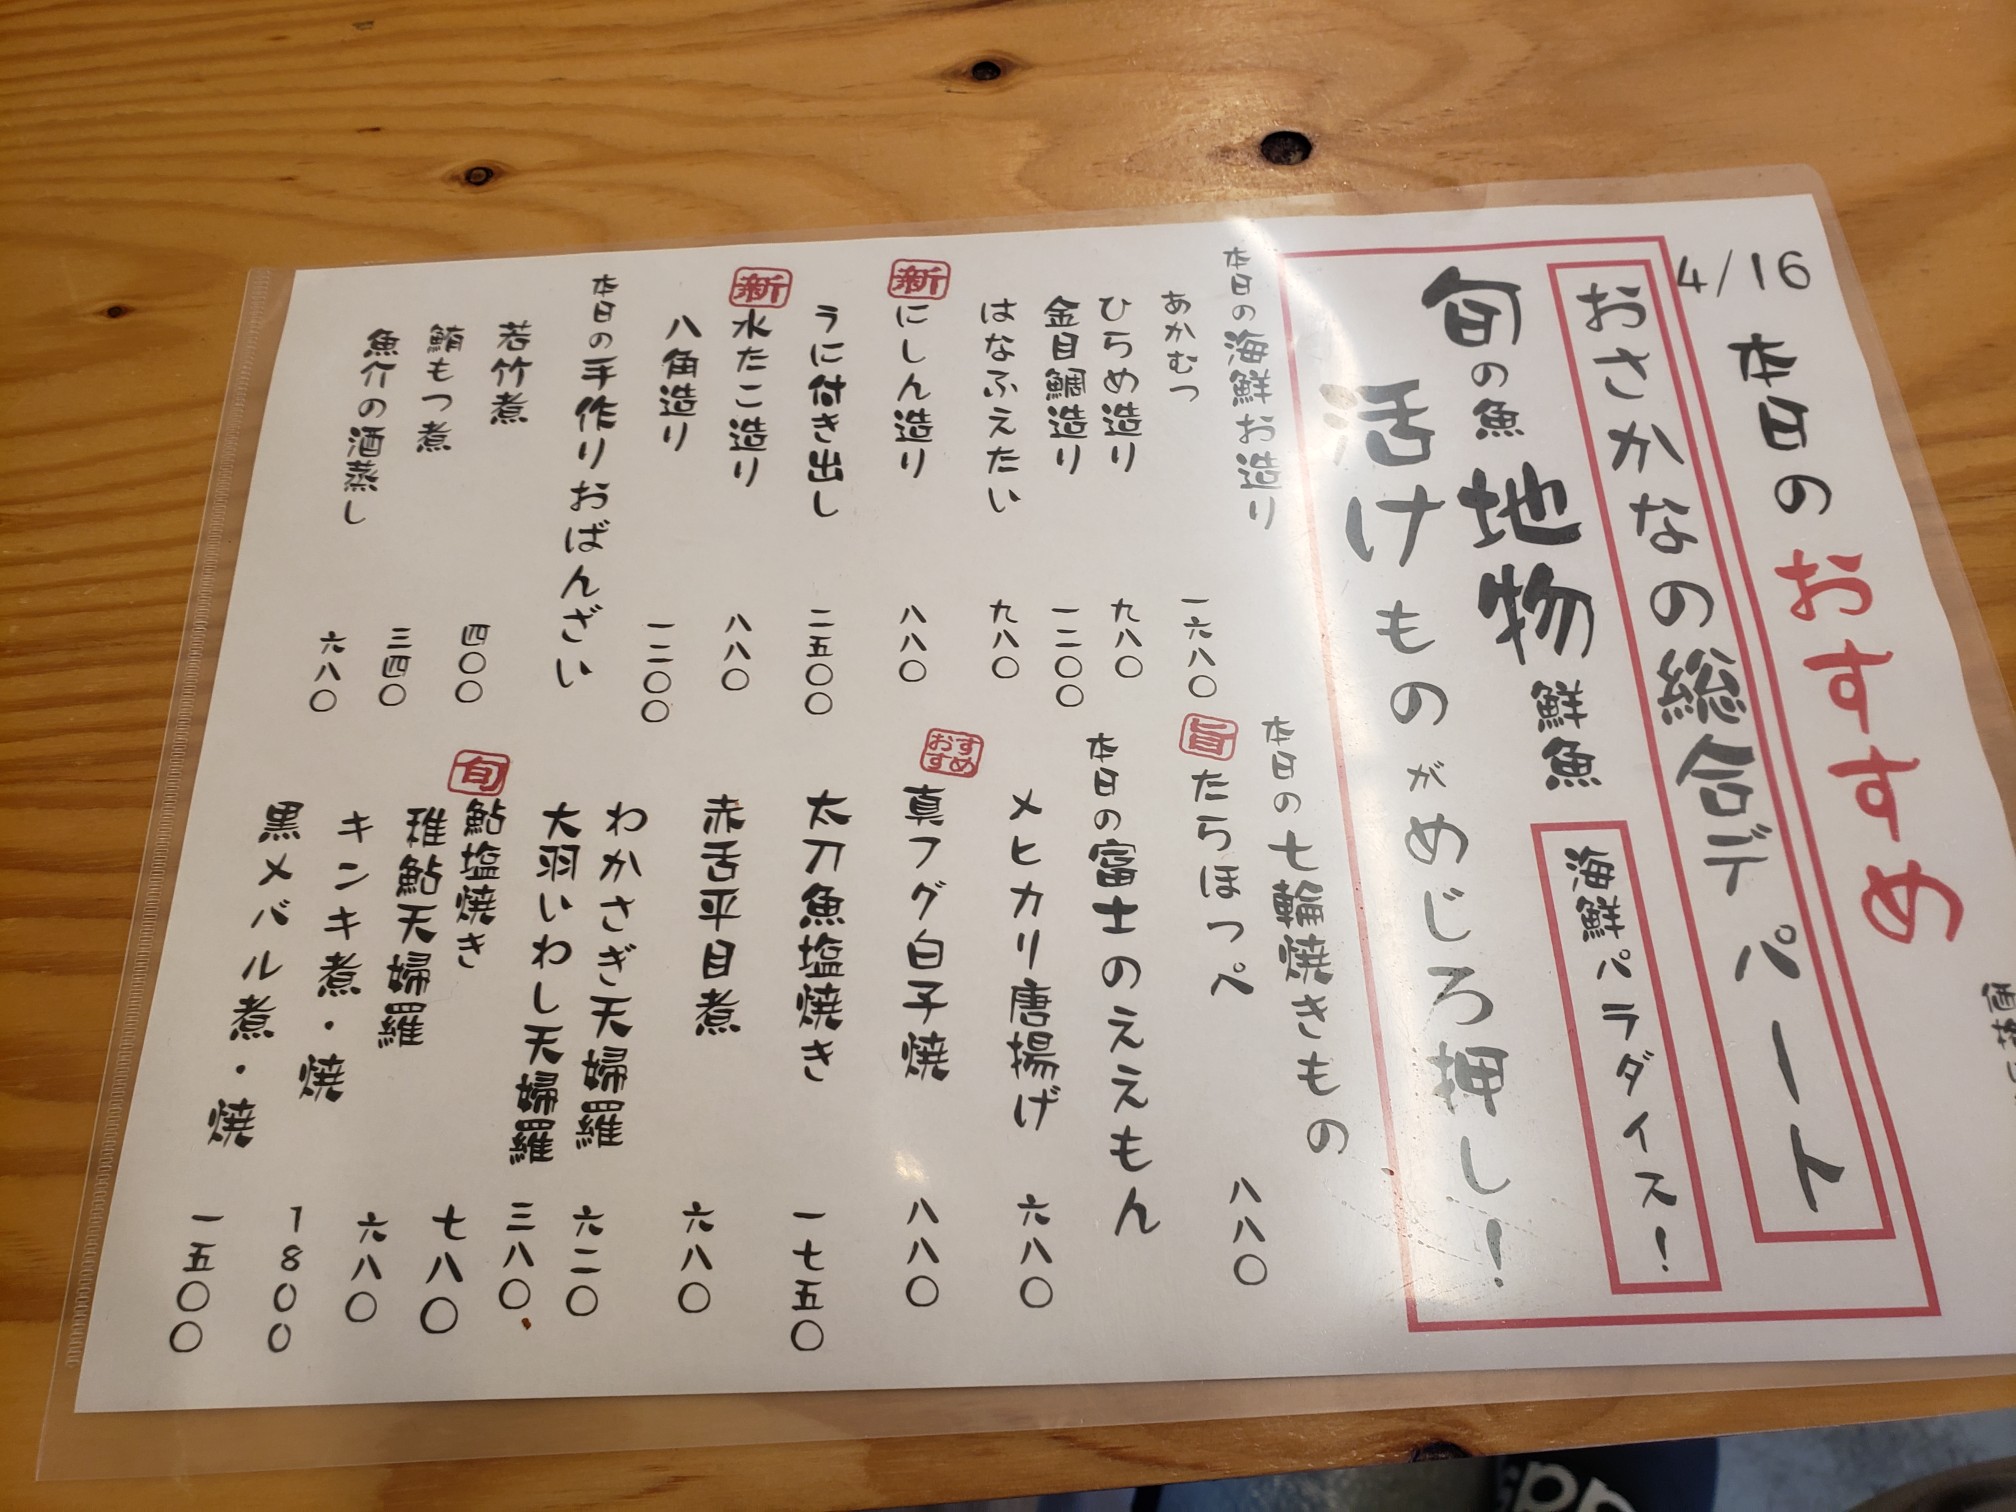 4/16
本日のおすすめ
おさかなの総合デパート
旬の魚 地物 鮮魚
海鮮パラダイス!
活けものがめじろ押し!
本日の海鮮お造り
あかむつ 一六八〇
ひらめ造り 九八〇
金目鯛造り 一二〇〇
はなふえたい 九八〇
新 にしん造り 八八〇
うに付き出し 二五〇〇
新 水たこ造り 八八〇
八角造り 一二〇〇
本日の手作りおばんざい
若竹煮 四〇〇
鮪もつ煮 三四〇
魚介の酒蒸し 六八〇
本日の七輪焼きもの
旨 たらほっぺ 八八〇
本日の富士のええもん
メヒカリ唐揚げ 六八〇
おすすめ 真フグ白子焼 八八〇
太刀魚塩焼き 一七五〇
赤舌平目煮 六八〇
わかさぎ天婦羅 六二〇
大羽いわし天婦羅 三八〇
旬 鮎塩焼き 七八〇
稚鮎天婦羅 六八〇
キンキ煮・焼 1800
黒メバル煮・焼 一五〇〇